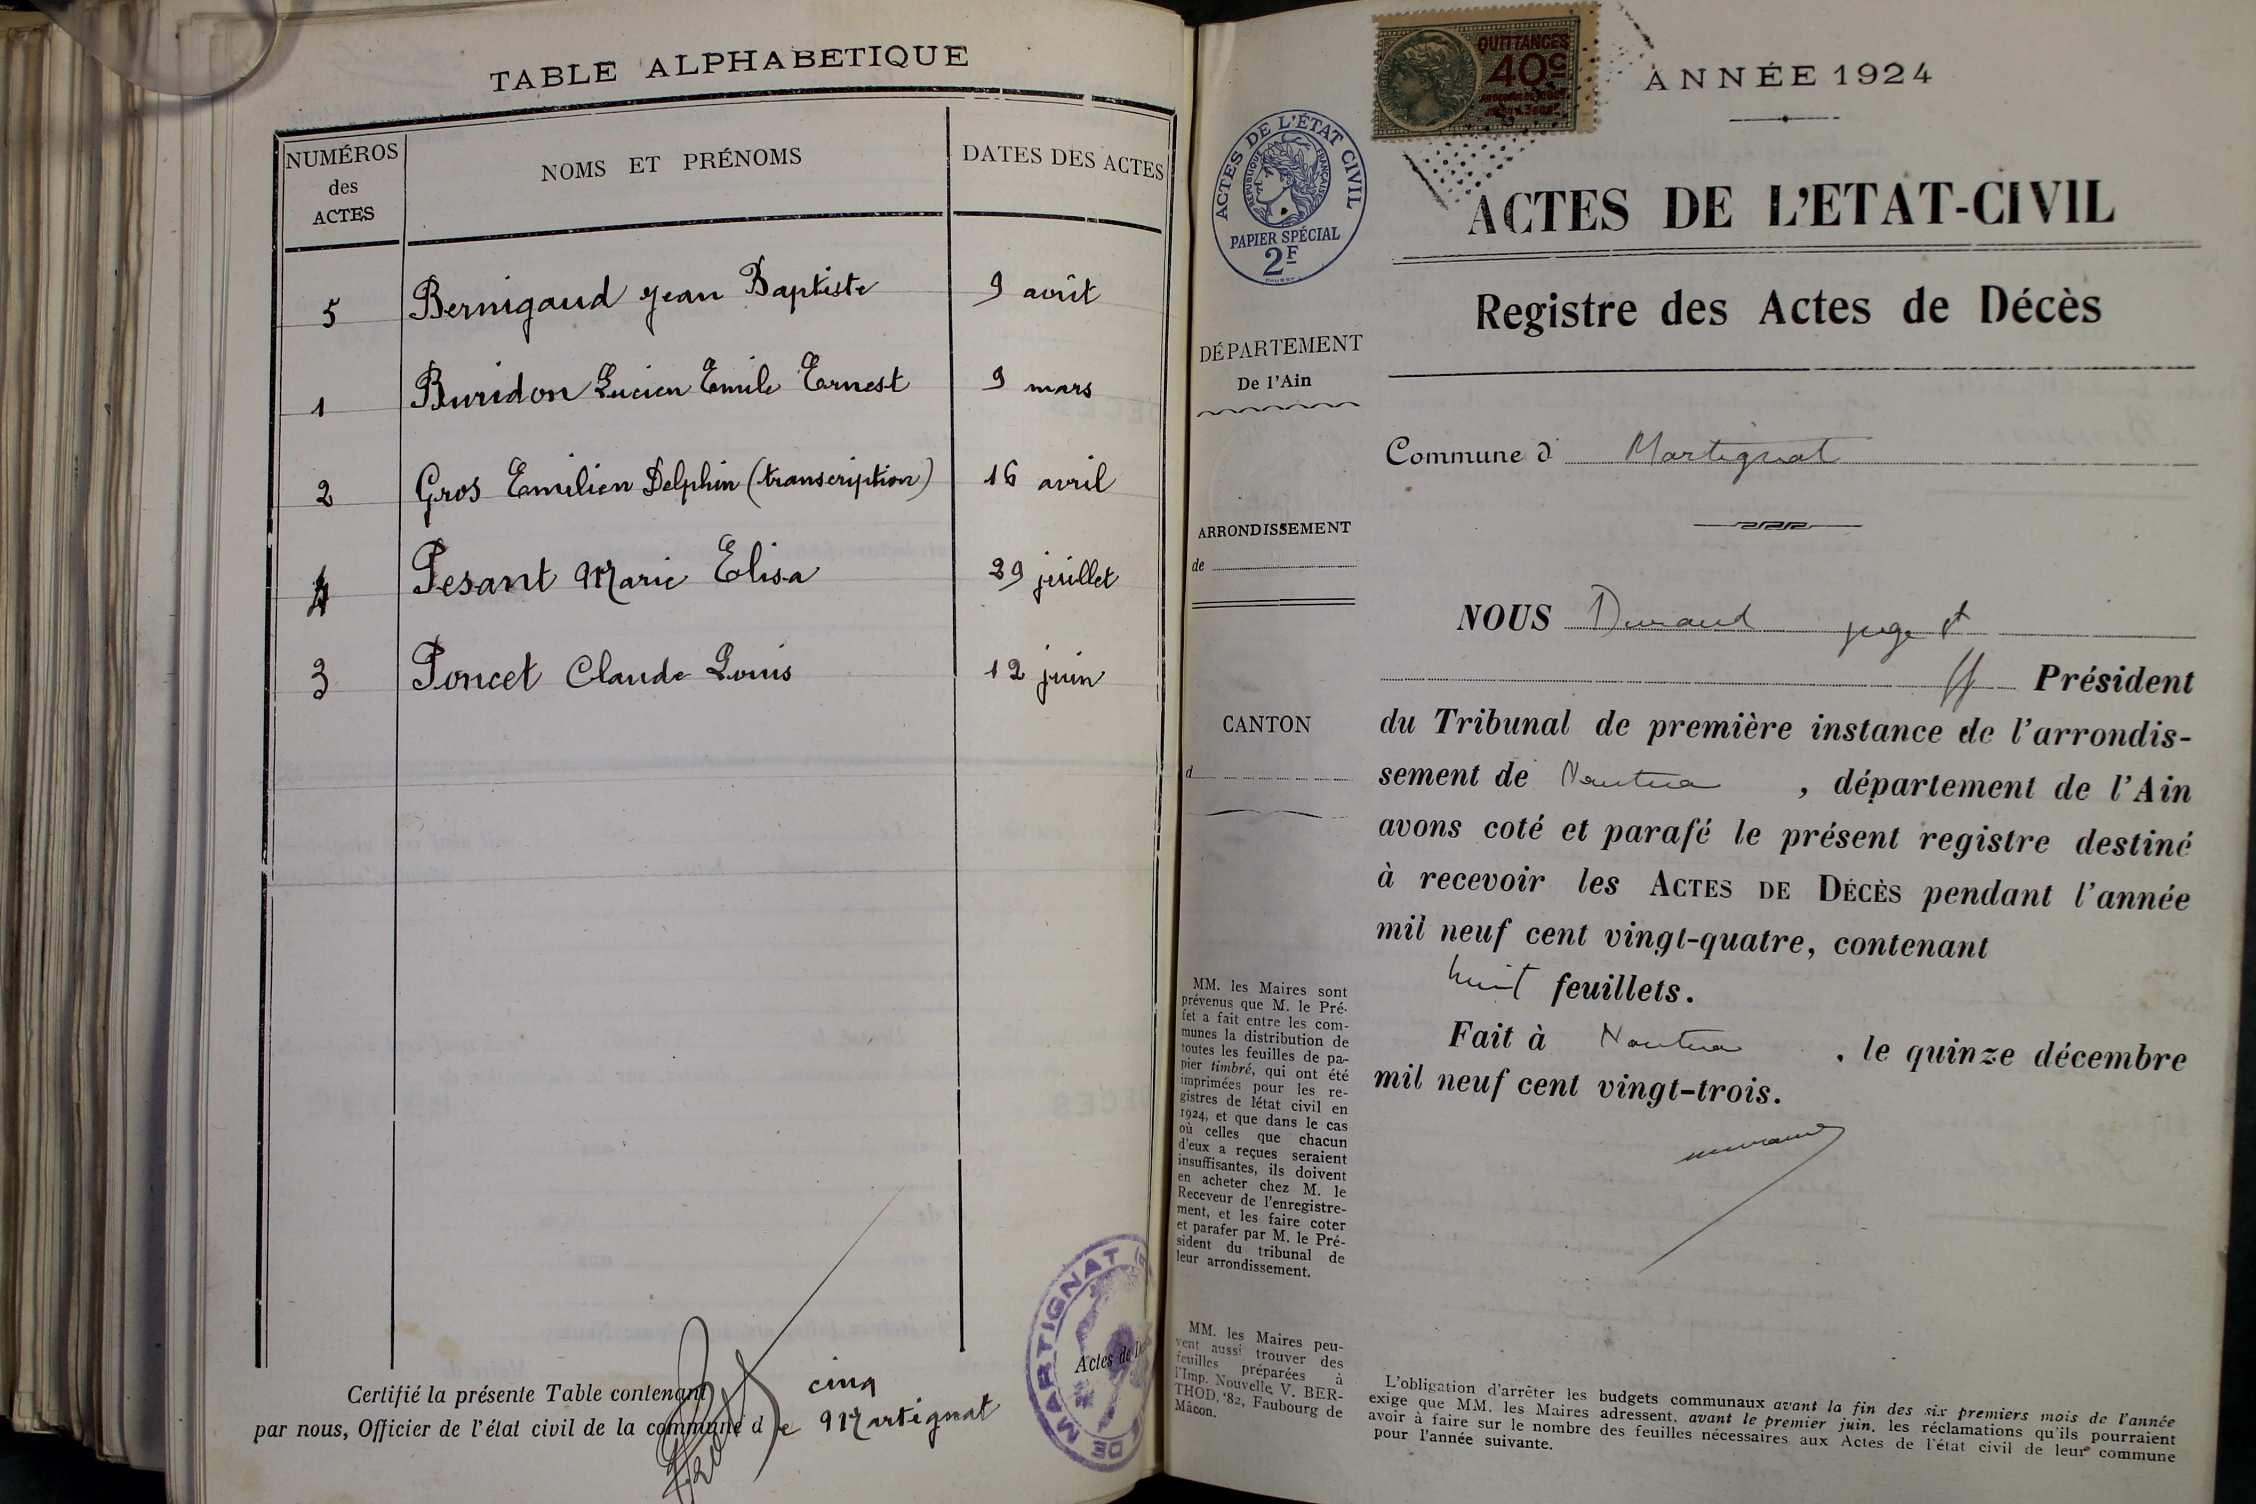 TABLE ALPHABETIQUE
NUMÉROS
des
ACTES
NOMS ET PRÉNOMS
DATES DES ACTES
5 Bernigaud Jean Baptiste 9 août
1 Buridon Lucien Emile Ernest 9 mars
2 Gros Emilien Delphin (transcription) 16 avril
4 Pesant Marie Elisa 29 juillet
3 Poncet Claude Louis 12 juin
Certifié la présente Table contenant cinq
par nous, Officier de l'état civil de la commune de Martignat
DE MARTIGNAT
Actes de
QUITTANCES
40c
ACTES DE L'ÉTAT CIVIL
RÉPUBLIQUE FRANÇAISE
PAPIER SPÉCIAL
2F
ANNÉE 1924
ACTES DE L'ETAT-CIVIL
Registre des Actes de Décès
DÉPARTEMENT
De l'Ain
Commune d Martignat
ARRONDISSEMENT
de
CANTON
d
NOUS Durand juge st
ff Président
du Tribunal de première instance de l'arrondis-
sement de Nantua , département de l'Ain
avons coté et parafé le présent registre destiné
à recevoir les ACTES DE DÉCÈS pendant l'année
mil neuf cent vingt-quatre, contenant
huit feuillets.
Fait à Nantua , le quinze décembre
mil neuf cent vingt-trois.
MM. les Maires sont
prévenus que M. le Pré-
fet a fait entre les com-
munes la distribution de
toutes les feuilles de pa-
pier timbré, qui ont été
imprimées pour les re-
gistres de l'état civil en
1924, et que dans le cas
où celles que chacun
d'eux a reçues seraient
insuffisantes, ils doivent
en acheter chez M. le
Receveur de l'enregistre-
ment, et les faire coter
et parafer par M. le Pré-
sident du tribunal de
leur arrondissement.
MM. les Maires peu-
vent aussi trouver des
feuilles préparées à
l'Imp. Nouvelle, V. BER-
THOD, 82, Faubourg de
Mâcon.
L'obligation d'arrêter les budgets communaux avant la fin des six premiers mois de l'année
exige que MM. les Maires adressent, avant le premier juin, les réclamations qu'ils pourraient
avoir à faire sur le nombre des feuilles nécessaires aux Actes de l'état civil de leur commune
pour l'année suivante.